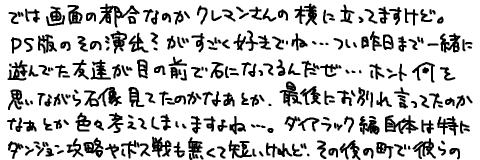 では画面の都合なのかクレマンさんの横に立ってますけど。
PS版のその演出?がすごく好きでね…つい昨日まで一緒に
遊んでた友達が目の前で石になってるんだぜ…ホント何を
思いながら石像見てたのかなあとか、最後にお別れ言ってたのか
なぁとか色々考えてしまいますよね…。ダイアラック編自体は特に
ダンジョン攻略やボス戦も無くて短いけれど、その後の町で彼らの